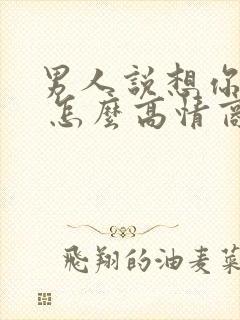 男人說想你
怎麼高情商
飛翔的油麦菜